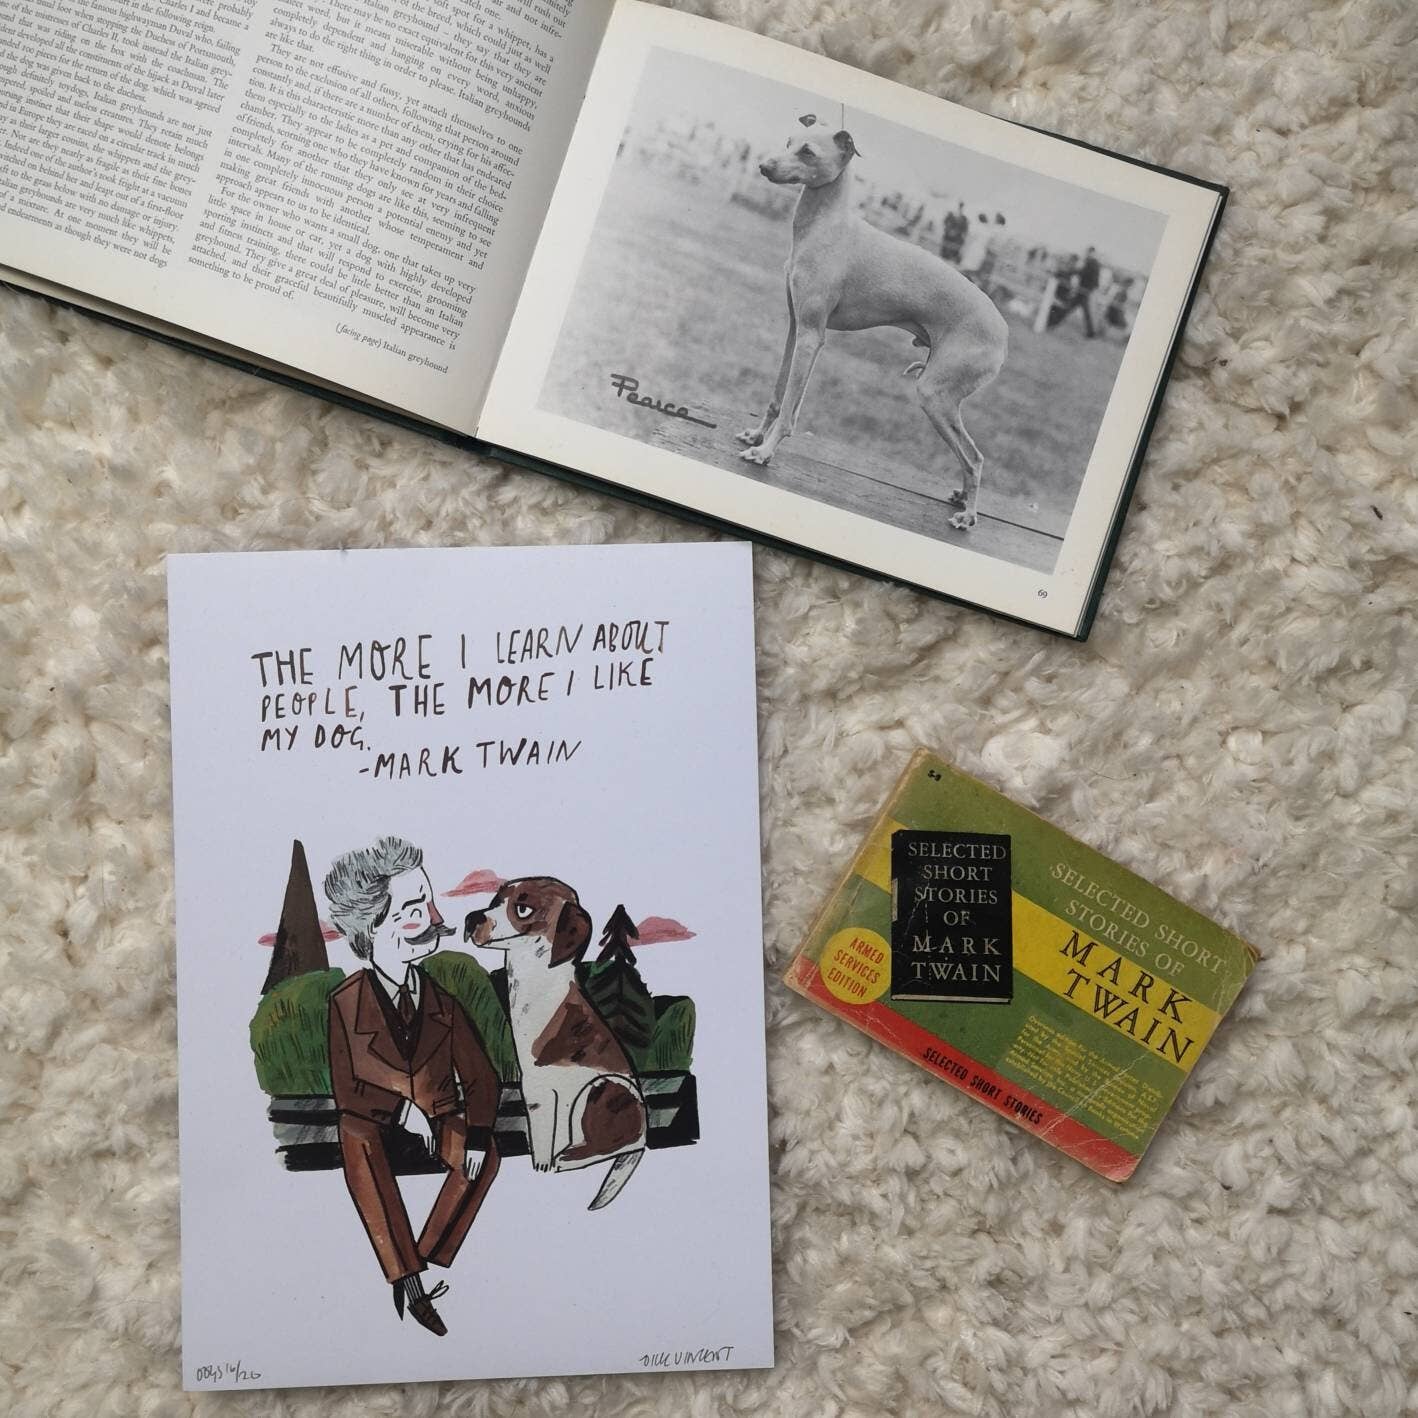 the famous highwayman Duval who, failing
when stopping the Duchess of Portsmouth,
of the mistresses of Charles II, took instead the Italian grey-
that was riding on the box with the coachman. The
developed all the constituents of the hijack as Duval later
100 pieces for the return of the dog, which was agreed
the dog was given back to the duchess.
definitely toydogs, Italian greyhounds are not just
spoiled and useless creatures. They retain much
instinct that their shape would denote belongs
in Europe they are raced on a circular track in much
as their larger cousins, the whippets and the grey-
Not are they nearly as fragile as their fine bones
Indeed one of the author's took fright at a vacuum
on behind her and leapt out of a first-floor
to the grass below with no damage or injury.
Italian greyhounds are very much like whippets,
of a mixture. At one moment they will be
and endearments as though they were not dogs
soft spot for a whippet, has a
the breed, which could just as well
Italian greyhound – they say that they are
There may be no exact equivalent for this very ancient
word, but it means miserable without being unhappy,
completely dependent and hanging on every word, anxious
always to do the right thing in order to please. Italian greyhounds
are like that.
They are not effusive and fussy, yet attach themselves to one
person to the exclusion of all others, following that person around
constantly and, if there are a number of them, crying for his affec-
tion. It is this characteristic more than any other that has endeared
them especially to the ladies as a pet and companion of the bed-
chamber. They appear to be completely random in their choice
of friends, scorning one who they have known for years and falling
completely for another that they only see at very infrequent
intervals. Many of the running dogs are like this, seeming to see
in one completely innocuous person a potential enemy and yet
making great friends with another whose temperament and
approach appears to us to be identical.
For the owner who wants a small dog, one that takes up very
little space in house or car, yet a dog with highly developed
sporting instinct, and that will respond to exercise, grooming
and fitness training, there could be little better than an Italian
greyhound. They give a great deal of pleasure, will become very
attached, and their graceful beautifully muscled appearance is
something to be proud of.
(facing page) Italian greyhound
Pearce
69
THE MORE I LEARN ABOUT
PEOPLE, THE MORE I LIKE
MY DOG.
-MARK TWAIN
DOGS 16/20
DICK VINCENT
S-8
SELECTED
SHORT
STORIES
OF
MARK
TWAIN
SELECTED SHORT
STORIES OF
MARK
TWAIN
ARMED
SERVICES
EDITION
SELECTED SHORT STORIES